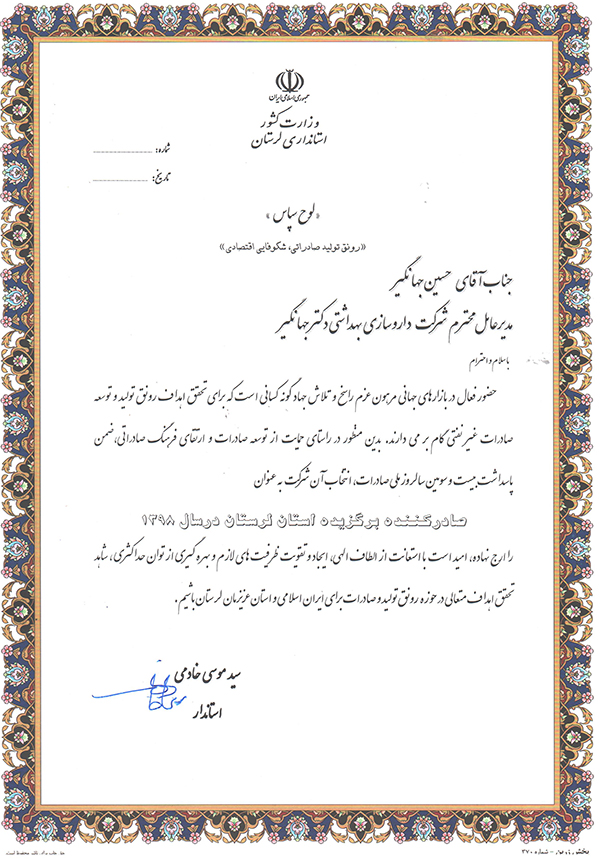 جمهوری اسلامی ایران
وزارت کشور
استانداری لرستان
شماره:
تاریخ:
«لوح سپاس»
«رونق تولید صادراتی، شکوفایی اقتصادی»
جناب آقای حسین جهانگیر
مدیرعامل محترم شرکت داروسازی بهداشتی دکتر جهانگیر
باسلام و احترام
حضور فعال در بازارهای جهانی مرهون عزم راسخ و تلاش جهادگونه کسانی است که برای تحقق اهداف رونق تولید و توسعه
صادرات غیرنفتی گام بر می دارند. بدین منظور در راستای حمایت از توسعه صادرات و ارتقای فرهنگ صادراتی، ضمن
پاسداشت بیست و سومین سالروز ملی صادرات، انتخاب آن شرکت به عنوان
صادرکننده برگزیده استان لرستان درسال ۱۳۹۸
را ارج نهاده، امید است با استعانت از الطاف الهی، ایجاد و تقویت ظرفیت های لازم و بهره گیری از توان حداکثری، شاهد
تحقق اهداف متعالی در حوزه رونق تولید و صادرات برای ایران اسلامی و استان عزیزمان لرستان باشیم.
سید موسی خادمی
استاندار
شماره ۳۷۰